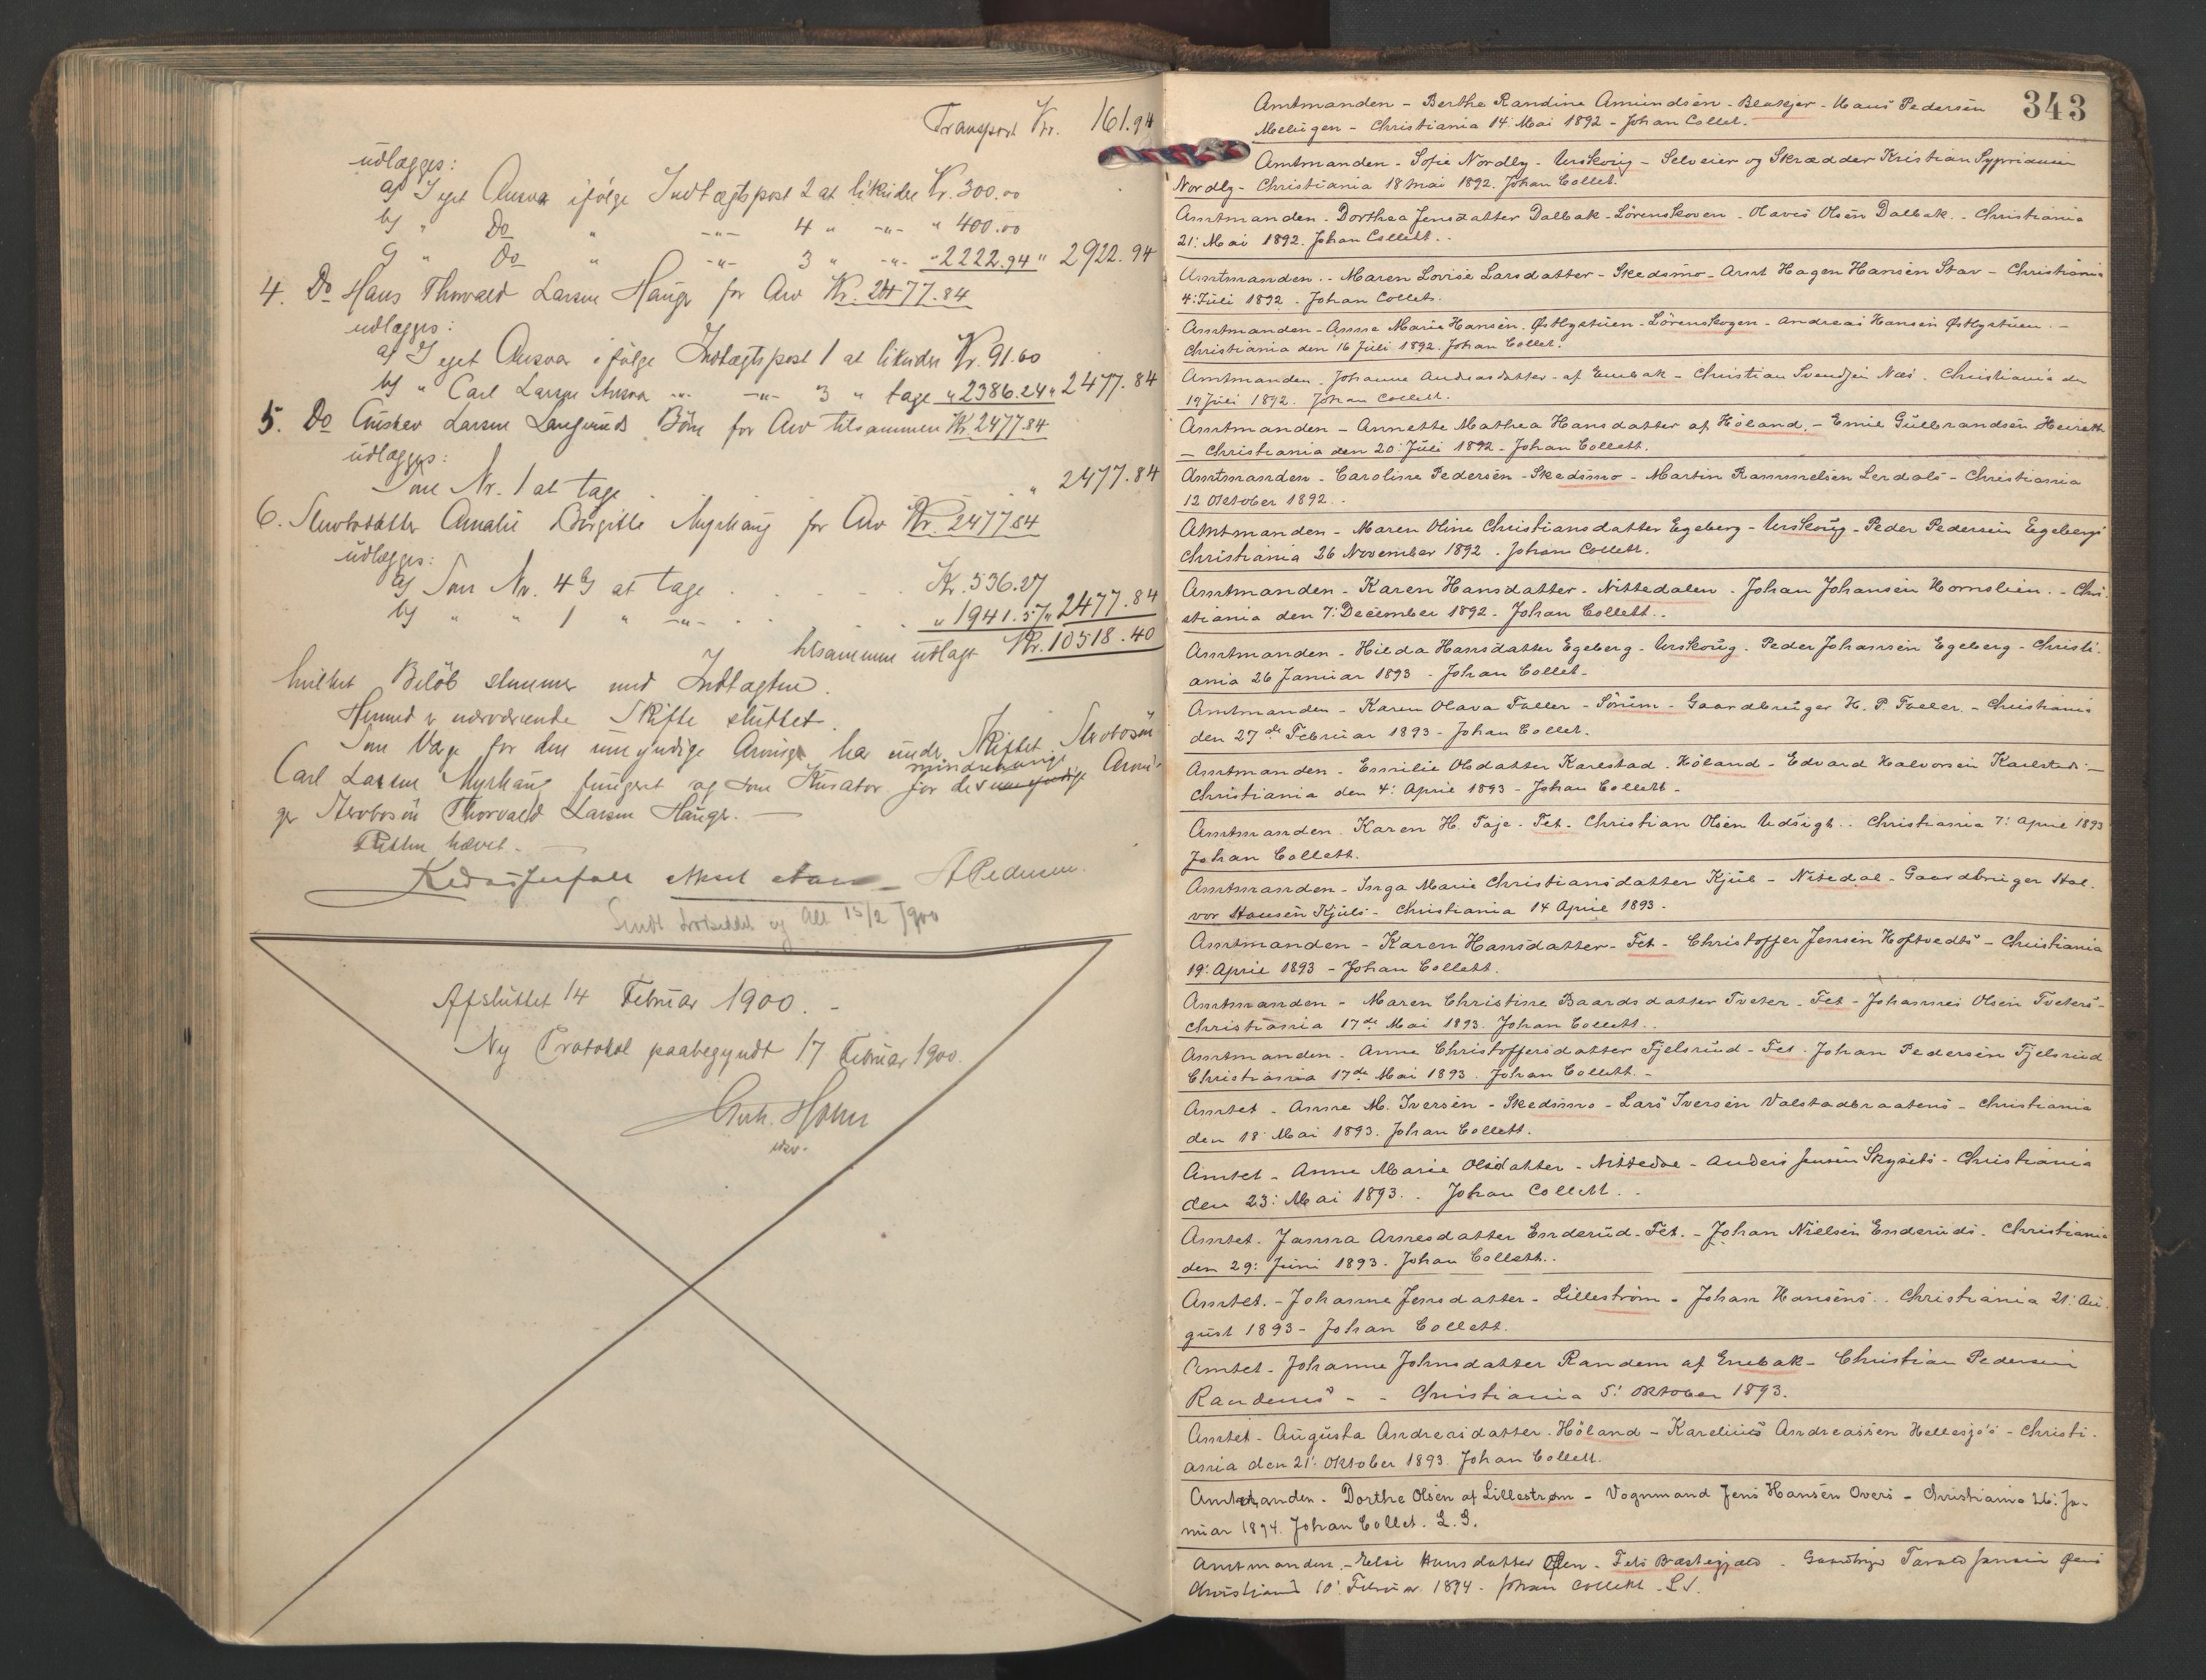 Transport Kr. 161.94
udlægges:
a) I eget Ansvar ifølge Indtægtspost 2 at likvidere Kr. 300.00
b) " Do " -"- 4 " -"- " 400.00
c) " Do " -"- 3 " -"- " 2222.94 " 2922.94
4. Do Hans Thorvald Larsen Hauger for Arv Kr. 2477.84
udlægges:
a) I eget Ansvar ifølge Indtægtspost 1 at likvidere Kr. 91.60
b) " Carl Larsens Ansvar -"- -"- 3 " tage " 2386.24 " 2477.84
5. Do Gustav Larsen Børn for Arv tilsammen Kr. 2477.84
udlægges:
Som Nr. 1 at tage " 2477.84
6. Stervbodatter Amalie Birgitte Myrhaug for Arv Kr. 2477.84
udlægges:
a) Som Nr. 4 b) at tage Kr. 536.27
b) " " 1 " -"- " 1941.57 " 2477.84
tilsammen udlagt Kr. 10518.40
hvilket Beløb stemmer med Indtægten.
Hermed er nærværende Skifte sluttet.
Som Værge for den umyndige Arving har under Skiftet Stervbosøn
Carl Larsen Myrhaug fungeret og som Kurator for den mindreaarige Arvin-
ger Stervbosøn Thorvald Larsen Hauger.
Retten hævet.
A Pedersen.
Sendt 15/2 1900
Afsluttet 14 Februar 1900. -
Ny Protokol paabegyndt 17 Februar 1900.
343
Amtmanden - Berthe Randine Amundsen - Blakjer - Hans Pedersen
Melingen - Christiania 14 Mai 1892 - Johan Collet.
Amtmanden - Sofie Nordly - Urskoug - Selveier og Skrædder Kristian Syprianein
Nordly - Christiania 18 mai 1892. Johan Collet.
Amtmanden - Dorthea Jensdatter Dalbak - Lörenskoven - Olaves Olsen Dalbak. - Christiania
21: Mai 1892. Johan Collett..
Amtmanden.. Maren Lovise Larsdatter - Skedsmo - Arnt Hagen Hansen Stav - Christiania
4: Juli 1892. Johan Collett.
Amtmanden - Anne Marie Hansen. Østlystuen - Lörenskogen - Andreas Hansen Østlystuen. -
Christiania den 16 Juli 1892. Johan Collet.
Amtmanden. Johanne Andreasdatter - af Enebak - Christian Svendsen Næs. Christiania den
19 Juli 1892. Johan Collett.
Amtmanden - Annette Mathea Hansdatter af Höland. - Emil Gulbrandsen
- Christiania den 20: Juli 1892 - Johan Collett.
Amtmanden - Caroline Pedersen - Skedsmo - Martin Rammelsen Lerdals - Christiania
12 Oktober 1892..
Amtmanden - Maren Oline Christiansdatter Egeberg - Urskoug - Peder Pedersen Egebergs
Christiania 26 November 1892. Johan Collett.
Amtmanden - Karen Hansdatter - Nittedalen - Johan Johansen Hornslien. - Chri-
stiania den 7: December 1892 - Johan Collett..
Amtmanden - Hilda Hansdatter Egeberg - Urskoug. Peder Johansen Egeberg - Christi-
ania 26 Januar 1893 - Johan Collet.
Amtmanden - Karen Olava Faller - Sörum - Gaardbruger H. P. Faller. - Christiania
den 27de Februar 1893 - Johan Collet.
Amtmanden - Emilie Olsdatter Karlstad. Höland - Edvard Halvorsen Karlstad. -
Christiania den 4: April 1893 - Johan Collett -
Amtmanden. Karen H. Toje. Fet. Christian Olsen Udsigt.. Christiania 7: April 1893
Johan Collett.
Amtmanden - Inga Marie Christiansdatter Kjul - Nitedal - Gaardbruger Hal-
vor Hansen Kjuls - Christiania 14 April 1893.
Amtmanden - Karen Hansdatter - Fet - Christoffer Jensen Hoftvedts - Christiania
19: April 1893 - Johan Collett.
Amtmanden - Maren Christine Baardsdatter Tveter - Fet - Johannes Olsen Tveters -
Christiania 17de Mai 1893. Johan Collett..
Amtmanden - Anne Christoffersdatter Fjelsrud - Fet. Johan Pedersen Fjelsrud
Christiania 17de Mai 1893. Johan Collett. -
Amtet - Anne M. Iversen - Skedsmo - Lars Iversen Valstadbraatens - Christiania
den 18 Mai 1893. Johan Collett.
Amtet - Anne Marie Olsdatter - Nittedal - Anders Jensen Skysets - Christiania
den 23: Mai 1893. . Johan Collett..
Amtet. Janna Arnesdatter Enderud - Fet. - Johan Nielsen Enderuds. Christiania
den 29: Juni 1893. Johan Collett..
Amtet. - Johanne Jensdatter - Lillestrøm - Johan Hansens.. Christiania 21: Au-
gust 1893 - Johan Collett.
Amtet - Johanne Johnsdatter Randem af Enebak - Christian Pedersen
Randems - - Christiania 5: Oktober 1893.
Amtet - Augusta Andreasdatter. Höland - Karelius Andreassen Hellesjö's - Christi-
ania den 21: Oktober 1893. Johan Collett.
Amtmanden. Dorthe Olsen af Lillestrøm - Vognmand Jens Hansen Overs - Christiania 26: Ja-
nuar 1894. Johan Collet. L. S.
Amtmanden. - Else Hansdatter - Fets Præstegjæld - Gaardbruger
Christiania 10: Februar 1894. Johan Collett L.S.